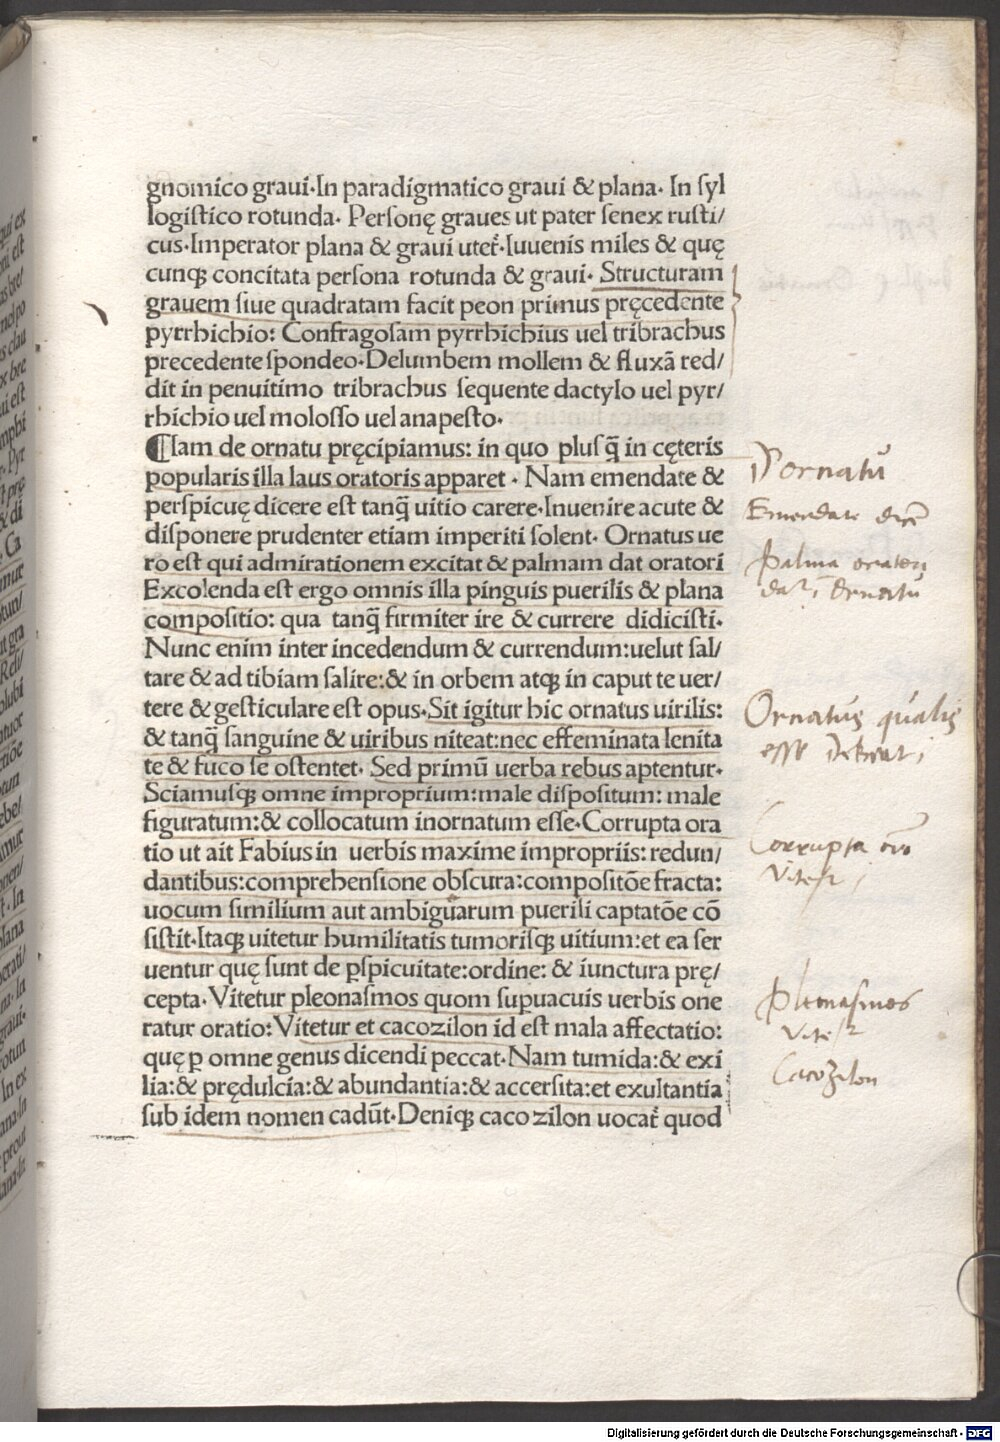 gnomico graui·In paradigmatico graui & plana· In ſyl
logiſtico rotunda· Perſonę graues ut pater ſenex ruſti/
cus·Imperator plana & graui utet᷑·Iuuenis miles & quę
cunqꝫ concitata perſona rotunda & graui· Structuram
grauem ſiue quadratam facit peon primus pręcedente
pyrrhichio: Confragoſam pyrrhichius uel tribrachus
precedente ſpondeo·Delumbem mollem & fluxã red/
dit in penultimo tribrachus ſequente dactylo uel pyr/
rhichio uel moloſſo uel anapeſto·
¶Iam de ornatu pręcipiamus: in quo pluſq̃ in cęteris
popularis illa laus oratoris apparet · Nam emendate &
perſpicuę dicere eſt tanq̃ uitio carere·Inuenire acute &
diſponere prudenter etiam imperiti ſolent· Ornatus ue
ro eſt qui admirationem excitat & palmam dat oratori
Excolenda eſt ergo omnis illa pinguis puerilis & plana
compoſitio: qua tanq̃ firmiter ire & currere didiciſti·
Nunc enim inter incedendum & currendum:uelut ſal/
tare & ad tibiam ſalire:& in orbem atqꝫ in caput te uer/
tere & geſticulare eſt opus·Sit igitur hic ornatus uirilis:
& tanq̃ ſanguine & uiribus niteat:nec effeminata lenita
te & fuco ſe oſtentet· Sed primũ uerba rebus aptentur·
Sciamuſqꝫ omne improprium:male diſpoſitum: male
figuratum:& collocatum inornatum eſſe·Corrupta ora
tio ut ait Fabius in uerbis maxime impropriis: redun/
dantibus:comprehenſione obſcura:compoſitõe fracta:
uocum ſimilium aut ambiguarum puerili captatõe cõ
ſiſtit·Itaqꝫ uitetur humilitatis tumoriſqꝫ uitium:et ea ſer
uentur quę ſunt de ꝑſpicuitate:ordine: & iunctura prę/
cepta·Vitetur pleonaſmos quom ſupuacuis uerbis one
ratur oratio:Vitetur et cacozilon id eſt mala affectatio:
quę ꝑ omne genus dicendi peccat·Nam tumida:& exi
lia:& prędulcia:& abundantia:& accerſita:et exultantia
ſub idem nomen cadũt·Deniqꝫ caco zilon uocat᷑ quod
D ornatũ
Emendate dicẽ
palma oratori
dat᷑ ĩ Ornatũ
Ornatus qualis
eſſe debeat
Corrupta oᷓo
Pleonaſmos
Cacozilon
Digitalisierung gefördert durch die Deutsche Forschungsgemeinschaft - DFG